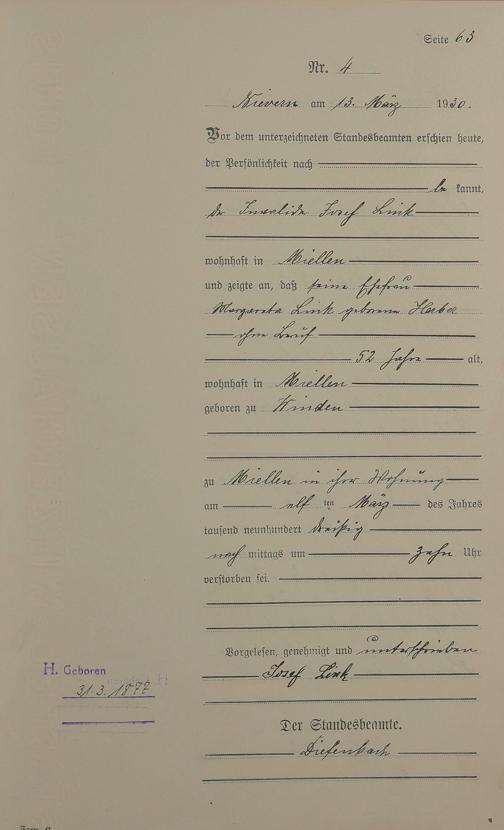 Seite 63
Nr. 4
Nievern am 13. März 1930.
Vor dem unterzeichneten Standesbeamten erschien heute,
der Persönlichkeit nach
be kannt,
der Invalide Josef Link
wohnhaft in Miellen
und zeigte an, daß seine Ehefrau
Margareta Link geborene
ohne Beruf
52 Jahre alt,
wohnhaft in Miellen
geboren zu Winden
zu Miellen in ihrer Wohnung
am elf ten März des Jahres
tausend neunhundert dreißig
nach mittags um zehn Uhr
verstorben sei.
Vorgelesen, genehmigt und unterschrieben
Josef Link
H. Geboren
31.3.1877
Der Standesbeamte.
Diefenbach